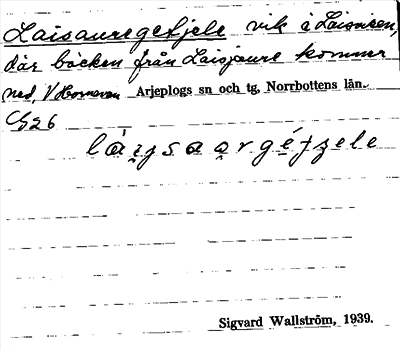 Laisauregetjele vik å Laisälven,
där bäcken från Laisjaure kommer
ned, V Hornavan Arjeplogs sn och tg, Norrbottens län.
Sigvard Wallström, 1939.